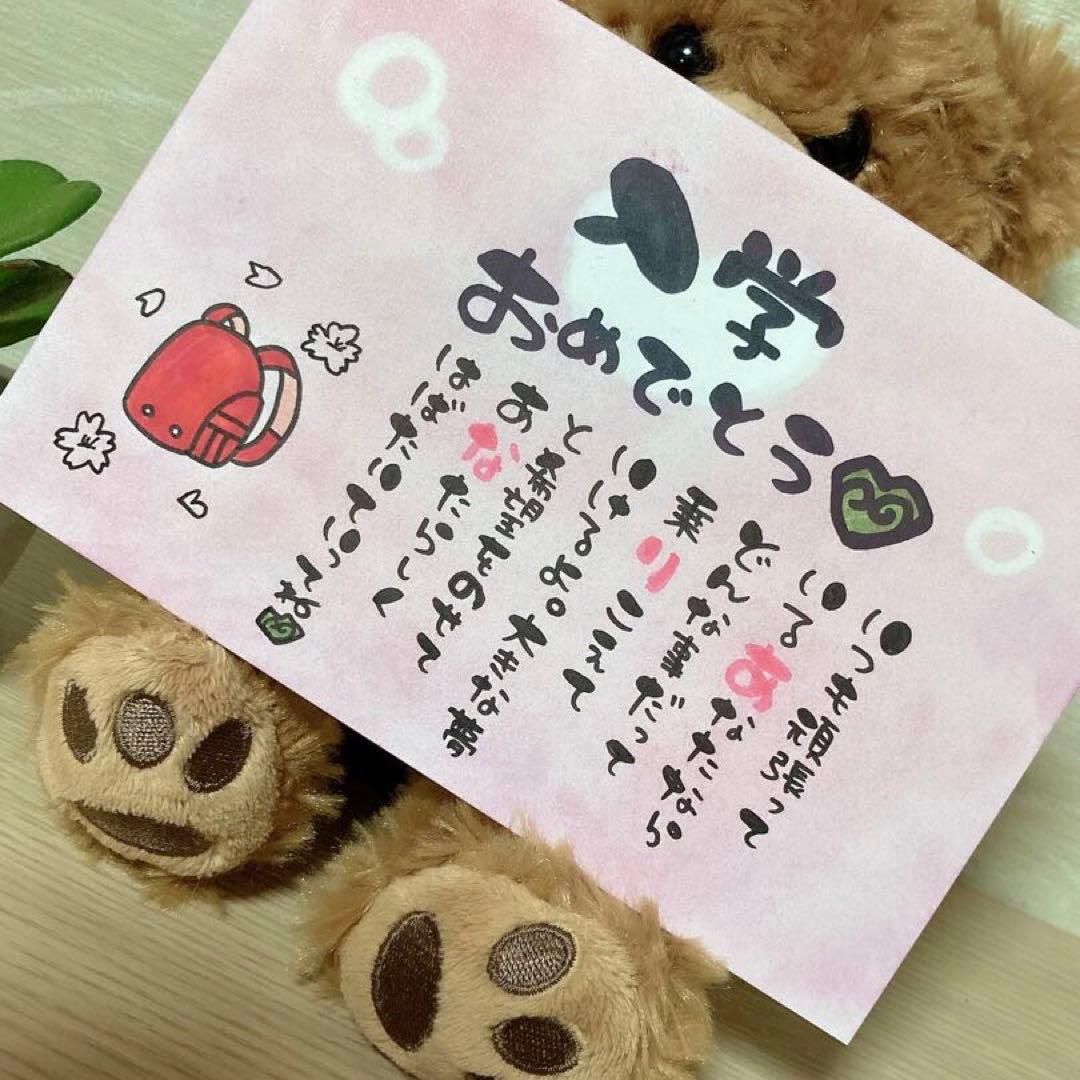 入学
おめでとう
いつも頑張って
いるあなたなら。
どんな事だって
乗りこえて
いけるよ。大きな夢
と希望をのせて
あなたらしく
はばたいていってね